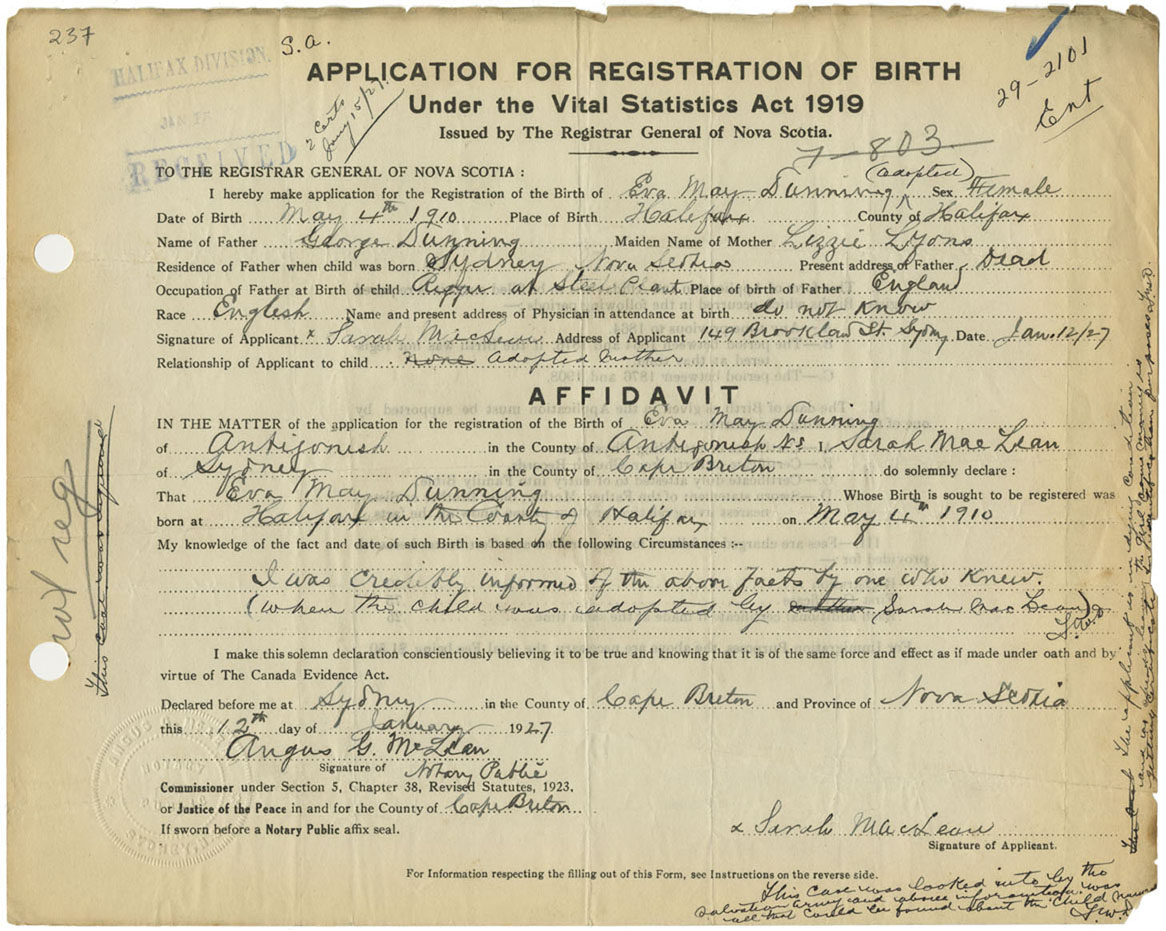 237
S.a.
HALIFAX DIVISION.
JAN 17
RECEIVED
2 Certs
Jany 15/27.
29-2101
Ent
APPLICATION FOR REGISTRATION OF BIRTH
Under the Vital Statistics Act 1919
Issued by The Registrar General of Nova Scotia.
7-803
TO THE REGISTRAR GENERAL OF NOVA SCOTIA :
(adopted)
I hereby make application for the Registration of the Birth of Eva May Dunning Sex Female
Date of Birth May 4th 1910 Place of Birth Halifax County of Halifax
Name of Father George Dunning Maiden Name of Mother Lizzie Lyons
Residence of Father when child was born Sydney Nova Scotia Present address of Father Dead
Occupation of Father at Birth of child Rigger at Steel Plant Place of birth of Father England
Race English Name and present address of Physician in attendance at birth do not know
Signature of Applicant x Sarah MacLean Address of Applicant 149 Brookland St. Sydney Date Jan. 12/27
Relationship of Applicant to child None Adopted Mother
AFFIDAVIT
IN THE MATTER of the application for the registration of the Birth of Eva May Dunning
of Antigonish in the County of Antigonish N.S I, Sarah MacLean
of Sydney in the County of Cape Breton do solemnly declare :
That Eva May Dunning Whose Birth is sought to be registered was
born at Halifax in the County of Halifax on May 4th 1910
My knowledge of the fact and date of such Birth is based on the following Circumstances :--
I was credibly informed of the above facts by one who knew.
(when the child was adopted by Sarah MacLean)
I make this solemn declaration conscientiously believing it to be true and knowing that it is of the same force and effect as if made under oath and by
virtue of The Canada Evidence Act.
Declared before me at Sydney in the County of Cape Breton and Province of Nova Scotia
this 12th day of January 1927
Angus G. McLean
Signature of Notary Public
Commissioner under Section 5, Chapter 38, Revised Statutes, 1923,
or Justice of the Peace in and for the County of Cape Breton
If sworn before a Notary Public affix seal.
x Sarah MacLean
Signature of Applicant.
For Information respecting the filling out of this Form, see Instructions on the reverse side.
This case was looked into by the
Salvation Army and above information was
all that could be found about the child
The applicant is in dying condition
and is
getting Certificate than purposes
This case was
reg